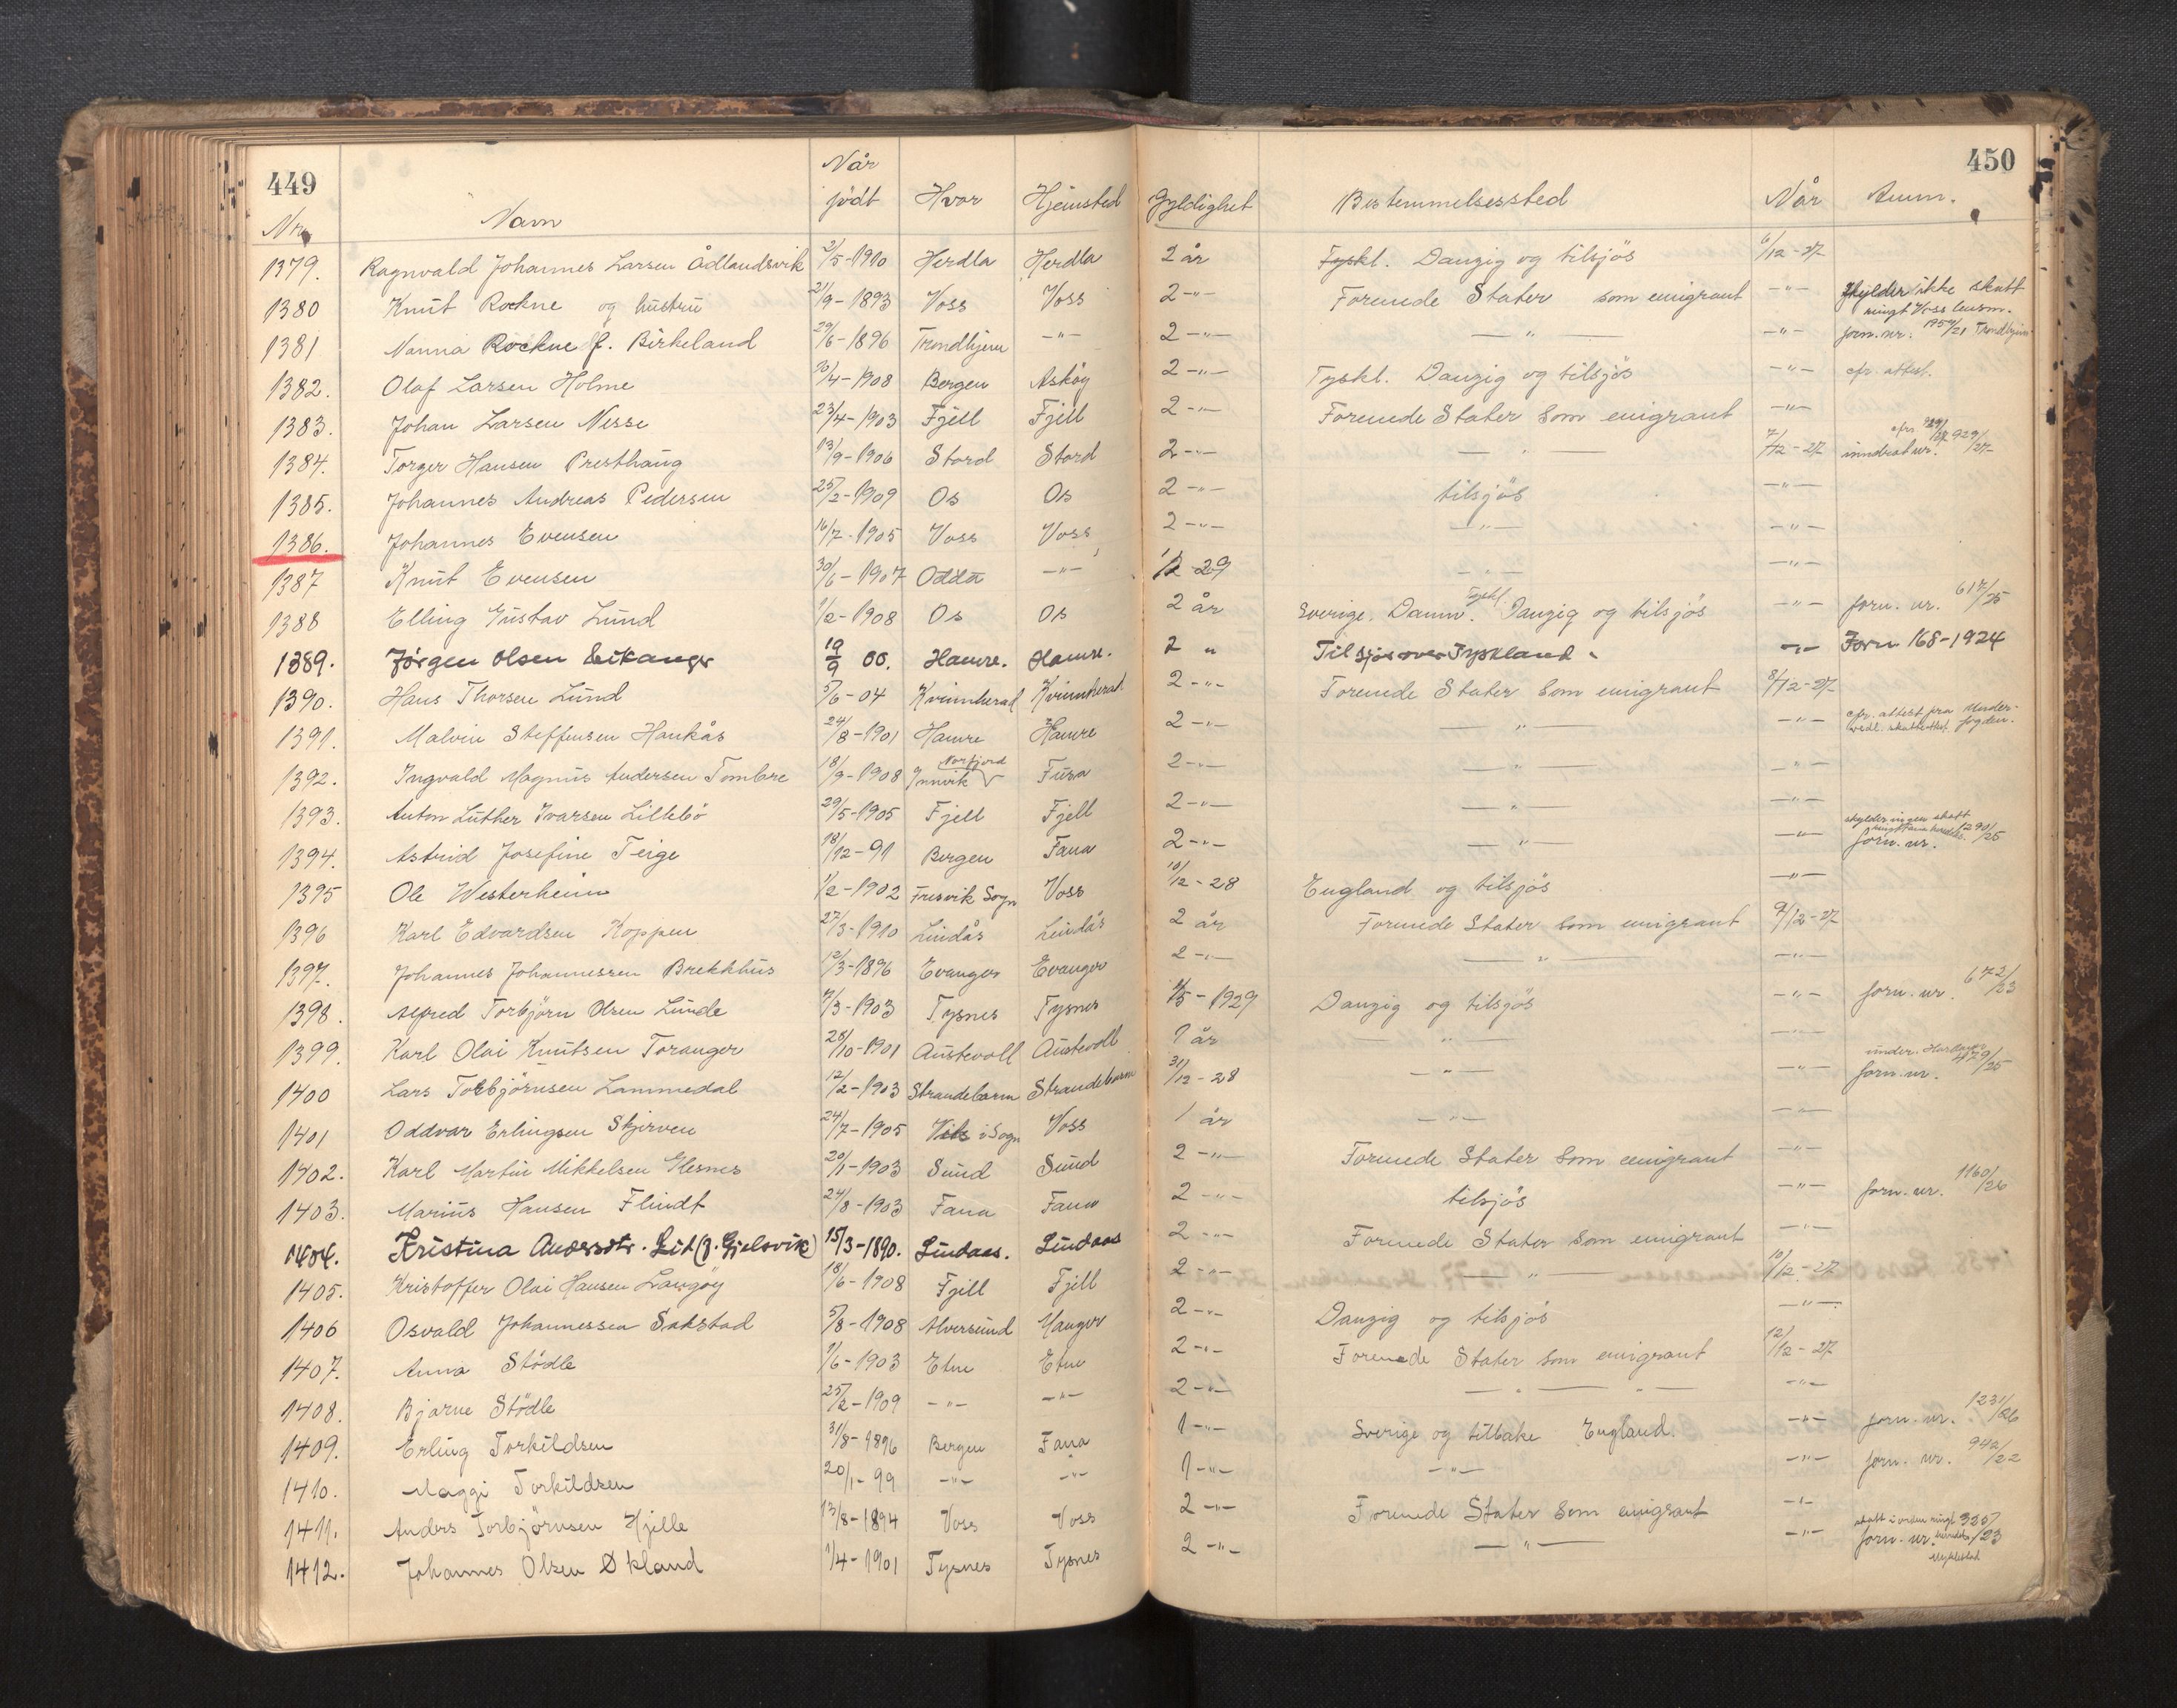 449
450
Nr. Navn Når født Hvor Hjemsted Gyldighet Bestemmelsessted Når Anm.
1379. Ragnvald Johannes Larsen Ådlandsvik 2/5-1910 Herdla Herdla 2 år Tyskl. Danzig og tilsjös 6/12-27
1380 Knut Rockne og hustru 21/9-1893 Voss Voss 2-"- Forenede Stater som emigrant -"- Skylder ikke skatt
1381 Nanna Rockne f. Birkeland 29/6-1896 Trondhjem -"- 2-"- -"- -"- forn. nr. Trondhjem
1382. Olaf Larsen Holme /4-1908 Bergen Asköy 2-"- Tyskl. Danzig og tilsjös -"- cfr. attest.
1383. Johan Larsen Nesse 23/4-1903 Fjell Fjell 2-"- Forenede Stater som emigrant -"-
1384. Torger Hansen Presthaug 13/9-1906 Stord Stord 2-"- -"- 7/12-27 inndrat nr. 929/27
1385. Johannes Andreas Pedersen 25/2-1909 Os Os 2-"- tilsjös -"-
1386. Johannes Evensen 16/7-1905 Voss Voss 2-"- -"- -"-
1387 Knut Evensen 30/6-1907 Odda -"- -"- -"-
1388 Elling Gustav Lund 1/2-1908 Os Os 2 år Sverige. Danm. Tyskl. Danzig og tilsjös -"- forn. nr. 617/25
1389. Jörgen Olsen Eikanger 19/9 00. Hamre. Hamre. 2 " Til sjös over Tyskland -"- Forn 168-1924
1390. Hans Thorsen Lund 5/6-04 Kvinnherad Kvinnherad 2-"- Forenede Stater som emigrant 8/12-27
1391. Malvin Steffensen Haukås 24/8-1901 Hamre Hamre 2-"- -"- -"- cfr. attest fra Underfogden.
1392. Ingvald Magnus Andersen Tombre 18/9-1908 Innvik Norfjord Fusa 2-"- -"- -"-
1393. Anton Luther Ivarsen Lillebö 29/5-1905 Fjell Fjell 2-"- -"- -"-
1394. Astrid Josefine Teige 18/12-91 Bergen Fana 2-"- -"- -"- skylder ingen skatt forn. nr. 1290/25
1395 Ole Westerheim 1/2-1902 Fresvik Sogn Voss 10/12-28 England og tilsjös -"-
1396 Karl Edvardsen Koppen 27/3-1910 Lindås Lindås 2 år Forenede Stater som emigrant 9/12-27
1397. Johannes Johannessen Brekkhus 12/3-1896 Evanger Evanger 2-"- -"- -"-
1398. Alfred Torbjörn Olsen Lunde 7/3-1903 Tysnes Tysnes /5-1929 Danzig og tilsjös -"- forn. nr. 672/23
1399. Karl Olai Knutsen Toranger 28/10-1901 Austevoll Austevoll 1 år -"- -"-
1400 Lars Torbjörnsen Lammedal 12/2-1903 Strandebarm Strandebarm 31/12-28 -"- -"- forn. nr. 479/25
1401 Oddvar Erlingsen Skjerven 24/7-1905 Vik i Sogn Voss 1 år -"- -"-
1402. Karl Martin Mikkelsen Glesnes 20/1-1903 Sund Sund 2-"- Forenede Stater som emigrant -"-
1403. Marius Hansen Flindt 24/8-1903 Fana Fana 2-"- tilsjös -"- forn. nr. 1160/26
1404. Kristina Andersdtr. Lid (f. Gjelsvik) 15/3-1890. Lindaas. Lindaas 2-"- Forenede Stater som emigrant -"-
1405. Kristoffer Olai Hansen Langöy 18/6-1908 Fjell Fjell 2-"- -"- 10/12-27
1406 Osvald Johannessen Sakstad 5/8-1908 Alversund Manger 2-"- Danzig og tilsjös -"-
1407. Anna Stödle /6-1903 Etne Etne 2-"- Forenede Stater som emigrant 12/12-27
1408. Bjarne Stödle 25/2-1909 -"- -"- 2-"- -"- -"- -"-
1409. Erling Torkildsen 31/8-1896 Bergen Fana 1-"- Sverige og tilbake England. -"- forn. nr. 1231/26
1410. Maggi Torkildsen 20/1-99 -"- -"- 1-"- -"- -"- forn. nr. 942/22
1411. Anders Torbjörnsen Hjelle 13/8-1894 Voss Voss 2-"- Forenede Stater som emigrant -"-
1412. Johannes Olsen Økland 1/4-1901 Tysnes Tysnes 2-"- -"- -"- forn. nr. 335/23